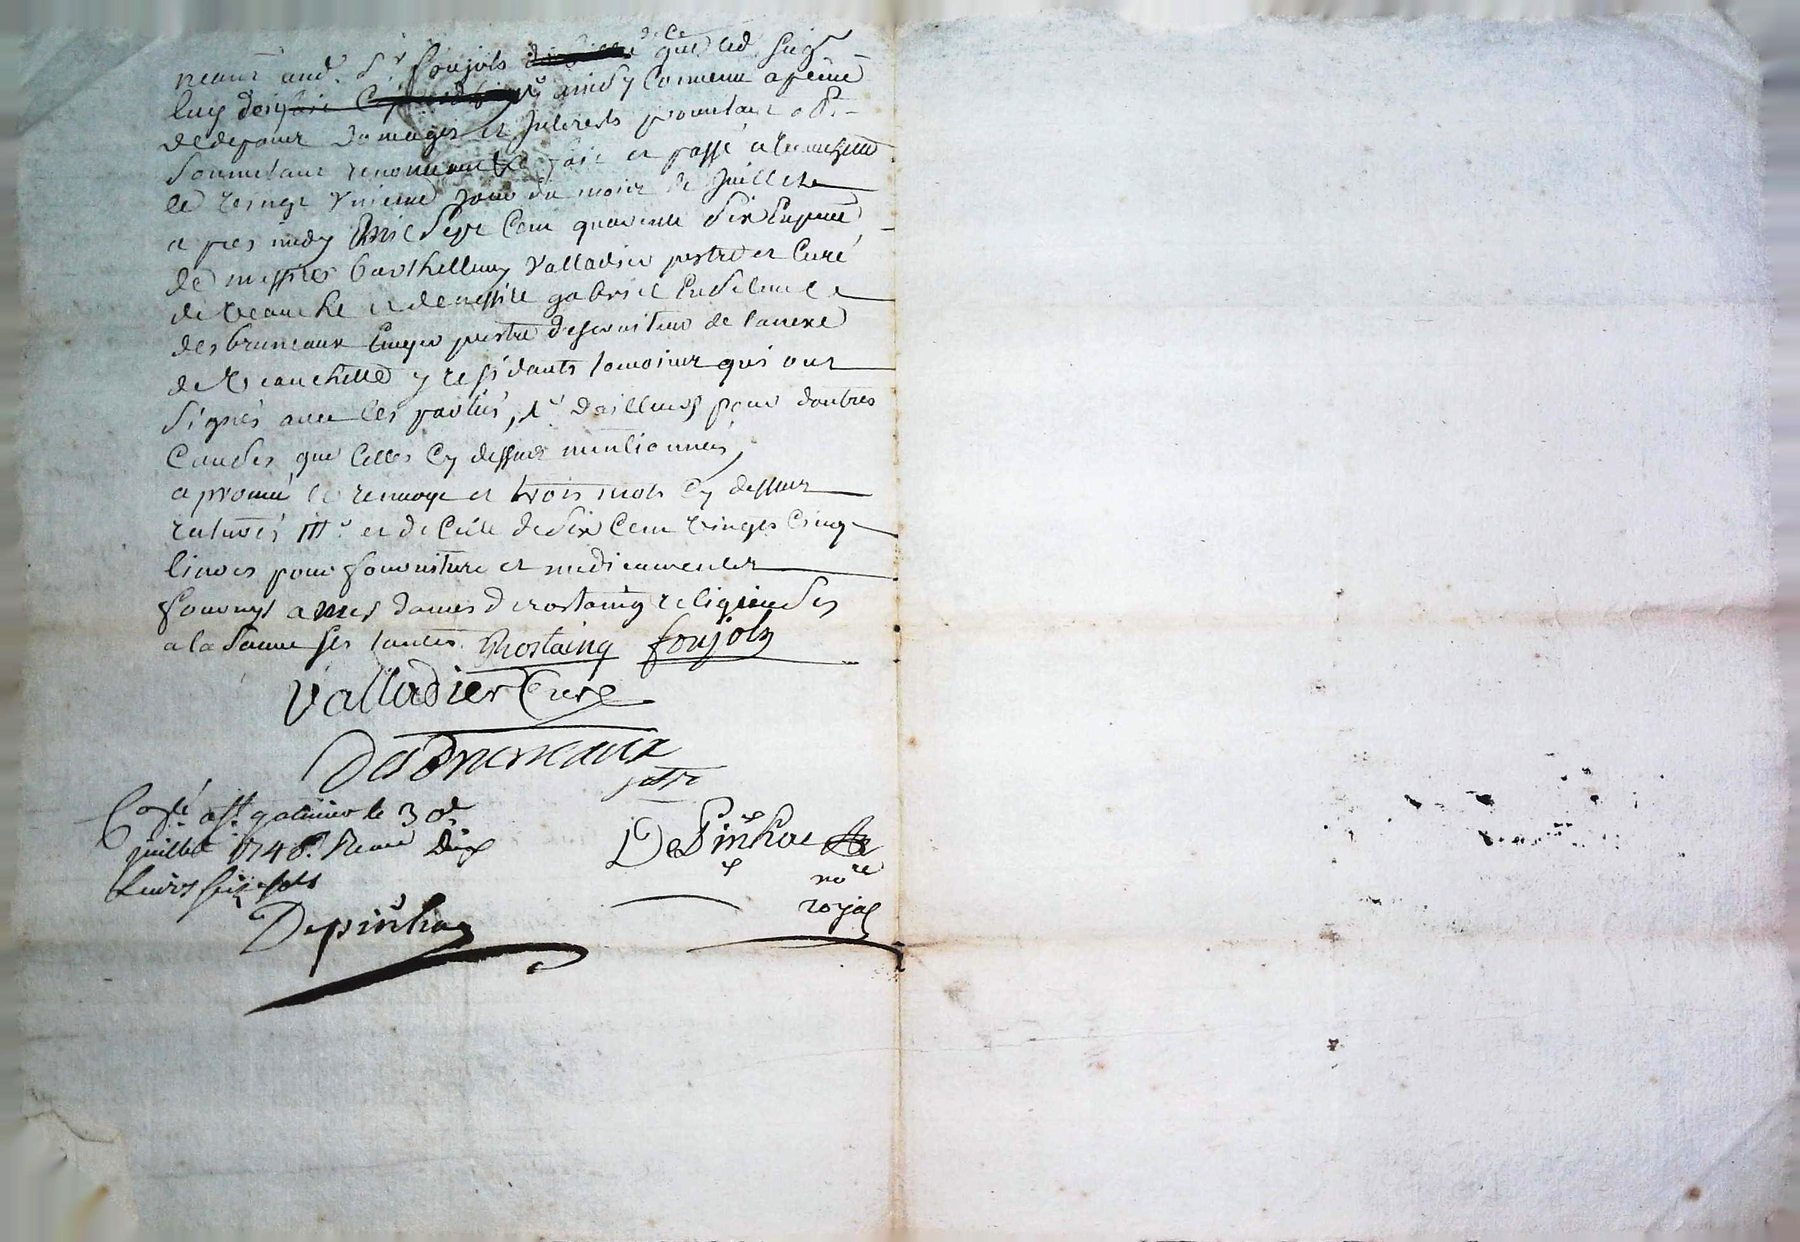 neaut aud. Sr foujols de ce que led. seigr
luy ainsy convenu a peine
de depans domages et interets
soumetant renonceant fait et passé a
le vingt unieme jour du mois de juillet
apres midy mil sept cent quarante six en pnce
de messires barthellemy Valladier prstre et curé
de veauche et de messire gabriel
des bruneaux ecuyer prstre desserviteur de lanexe
de Veauchette y residants temoins qui ont
signés avec les parties, 1° dailleurs pour dautres
causes que celles cy dessus mentionnés,
aprouvé le renvoye et trois mots cy dessus
raturés et de celle de six cent vingt cinq
livres pour fourniture et medicaments
fournys a mes dames de rostaing religieuses
a la ses tantes Rostaing foujols
Valladier Curé
Des Bruneaux
prstre
Collé a St galmier le 30e
juillet 1746. Receu dix
livres sols
DePinhac
nore
royal
Depinhac